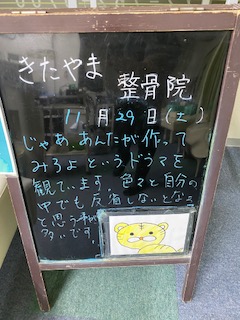 きたやま
整骨院
11月29日(土)
じゃあ、あんたが作って
みろよというドラマを
観ています。色々と自分の
中でも反省しないとなぁ
と思う事が
多いです。